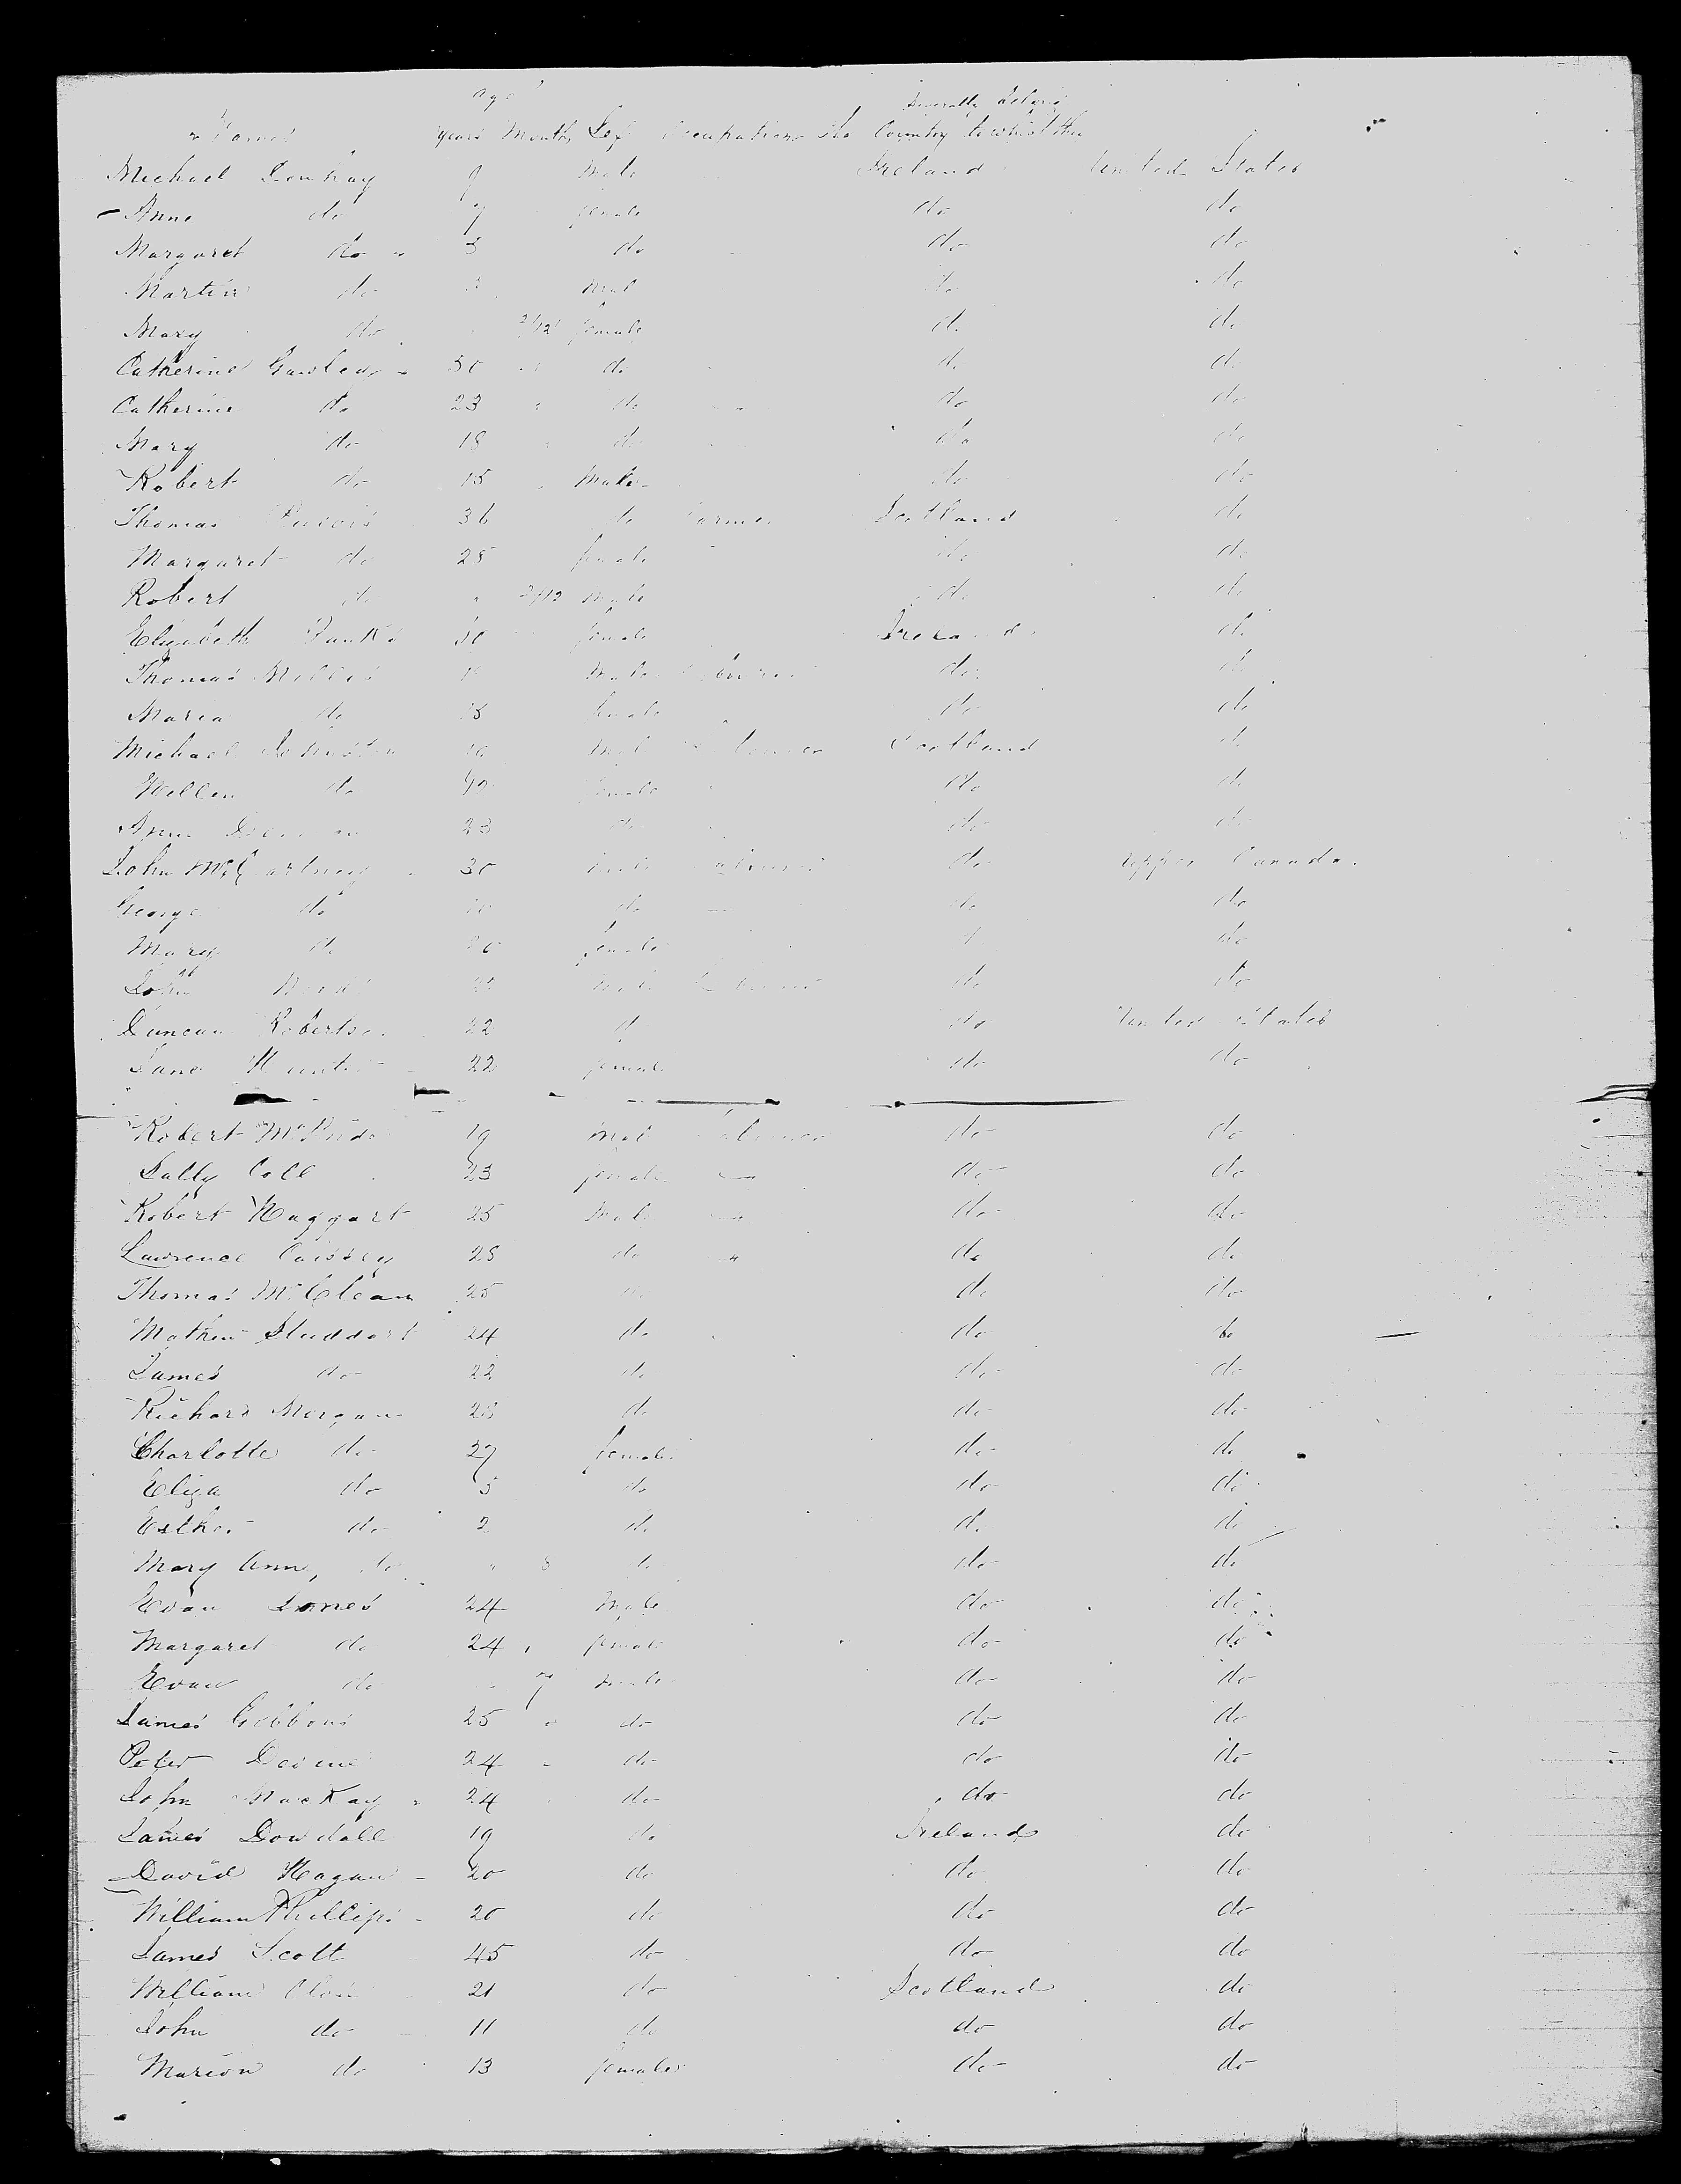 age Severally belong
Names years Months Sex Occupation the Country to which they
Michael 9 Male Ireland United States
Anne do 7 female do do
Margaret do 5 do do do
Martin do Male do do
Mary do 2/12 female do do
Catherine Gawley 50 do do do
Catherine do 23 do do do
Mary do 18 do do do
Robert do 15 Male do do
Thomas 36 do Farmer Scotland do
Margaret do 28 female do do
Robert do 2/12 male do do
Elizabeth female Ireland do
Thomas Male do do
Maria do female do do
Michael Johnston Male Scotland do
Hellen do 42 female do do
Ann 23 do do do
John McCartney 30 male labourer do Upper Canada
George do do do do
Mary do female do do
John male do do
Duncan Robertson 22 do do United States
Jane Hunter 22 female do do
Robert 19 male labourer do do
Sally Coll 23 female do do
Robert Haggart 25 Male do do
Lawrence 28 do do do
Thomas McClean 25 do do do
Mathew Studdart 24 do do do
James do 22 do do do
Richard Morgan 28 do do do
Charlotte do 27 female do do
Eliza do 5 do do do
Esther do 2 do do do
Mary Ann do 8 do do do
Evan Jones 24 Male do do
Margaret do 24 female do do
Evan do 7 male do do
James Gibbons 25 do do do
Peter Devine 24 do do do
John MacKay 24 do do do
James Dowdall 19 do Ireland do
David Hagan 20 do do do
William Phillips 20 do do do
James Scott 45 do do do
William 21 do Scotland do
John do 11 do do do
Marion do 13 females do do